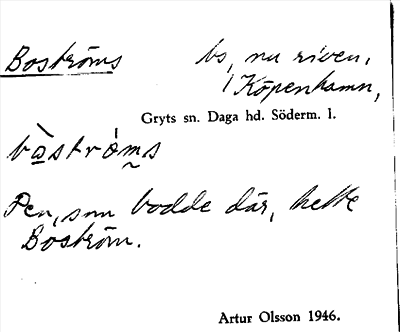 Boströms bs, nu riven,
i Köpenhamn,
Gryts sn. Daga hd. Söderm. l.
bàstrɷ́m̰s
Den, som bodde där, hette
Boström.
Artur Olsson 1946.